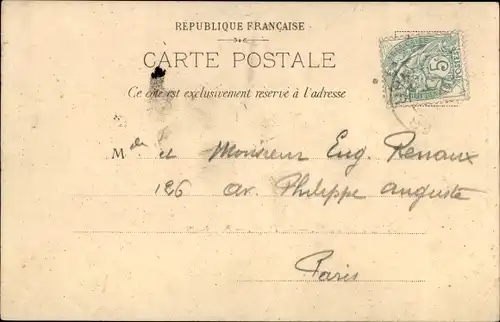 RÉPUBLIQUE FRANÇAISE
CARTE POSTALE
Ce côté est exclusivement réservé à l'adresse
Mde et Monsieur Eug. Renaux
126 av. Philippe Auguste
Paris
5